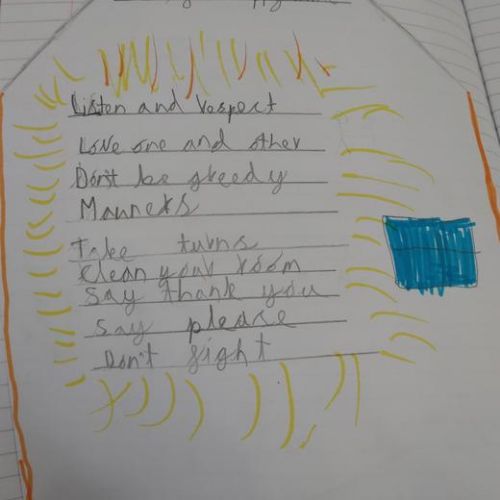 Listen and respect
Love one and other
Don't be greedy
Manners
Take turns
Clean your room
Say thank you
Say please
Don't fight